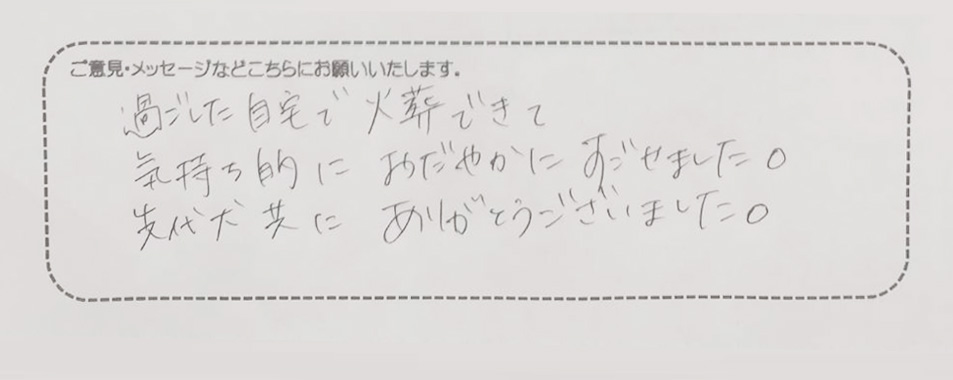 ご意見・メッセージなどこちらにお願いいたします。
過ごした自宅で火葬できて
気持ち的におだやかにすごせました。
先代犬共にありがとうございました。